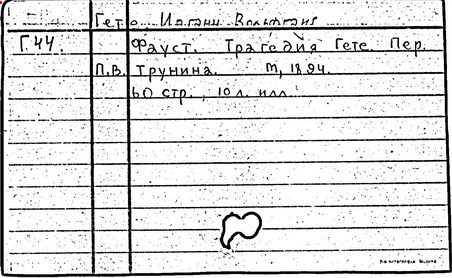 Гете Иоганн Вольфганг
Г44. Фауст. Трагедия Гете. Пер.
П.В. Трунина. М, 1894.
60 стр., 10 л. илл.